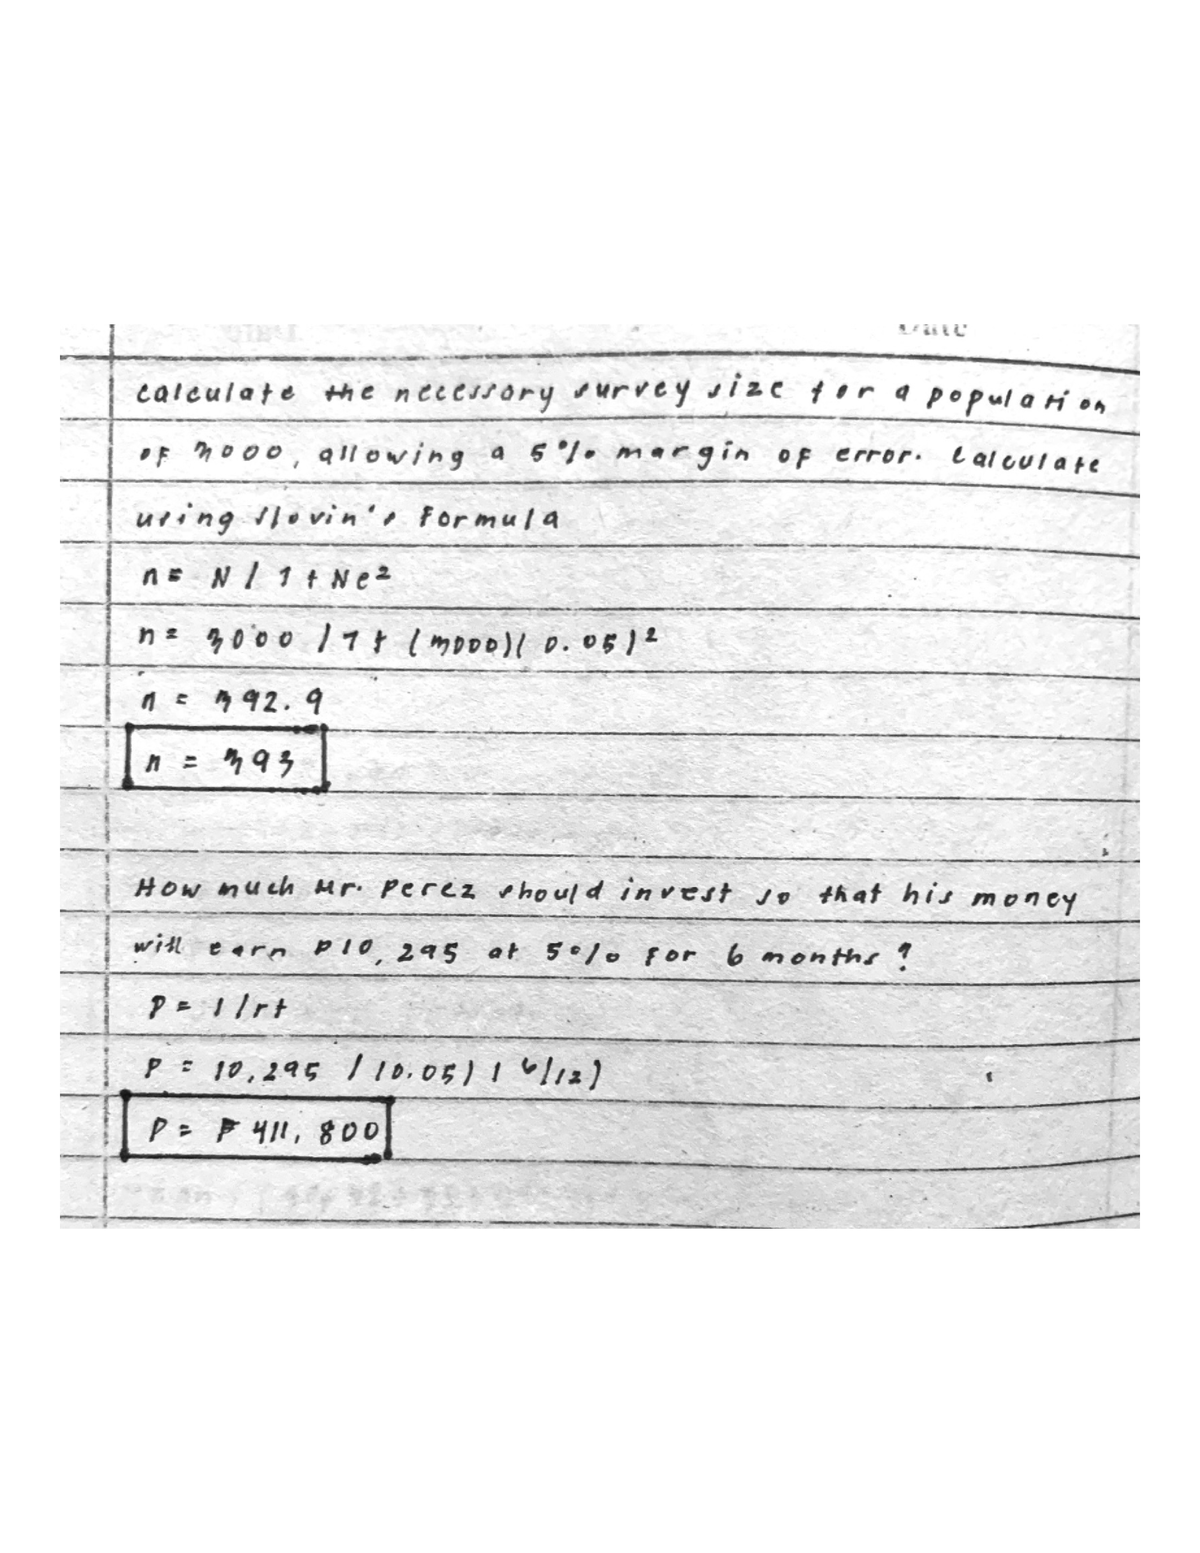 Date
Calculate the necessary survey size for a population
of 3000, allowing a 5% margin of error. Calculate
using Slovin's Formula
n = N / 1 + Ne²
n = 3000 / 1 + (3000)(0.05)²
n = 392.9
n = 393
How much Mr. Perez should invest so that his money
will earn ₱10,295 at 5% for 6 months?
P = I/rt
P = 10,295 / (0.05) (6/12)
P = ₱411,800